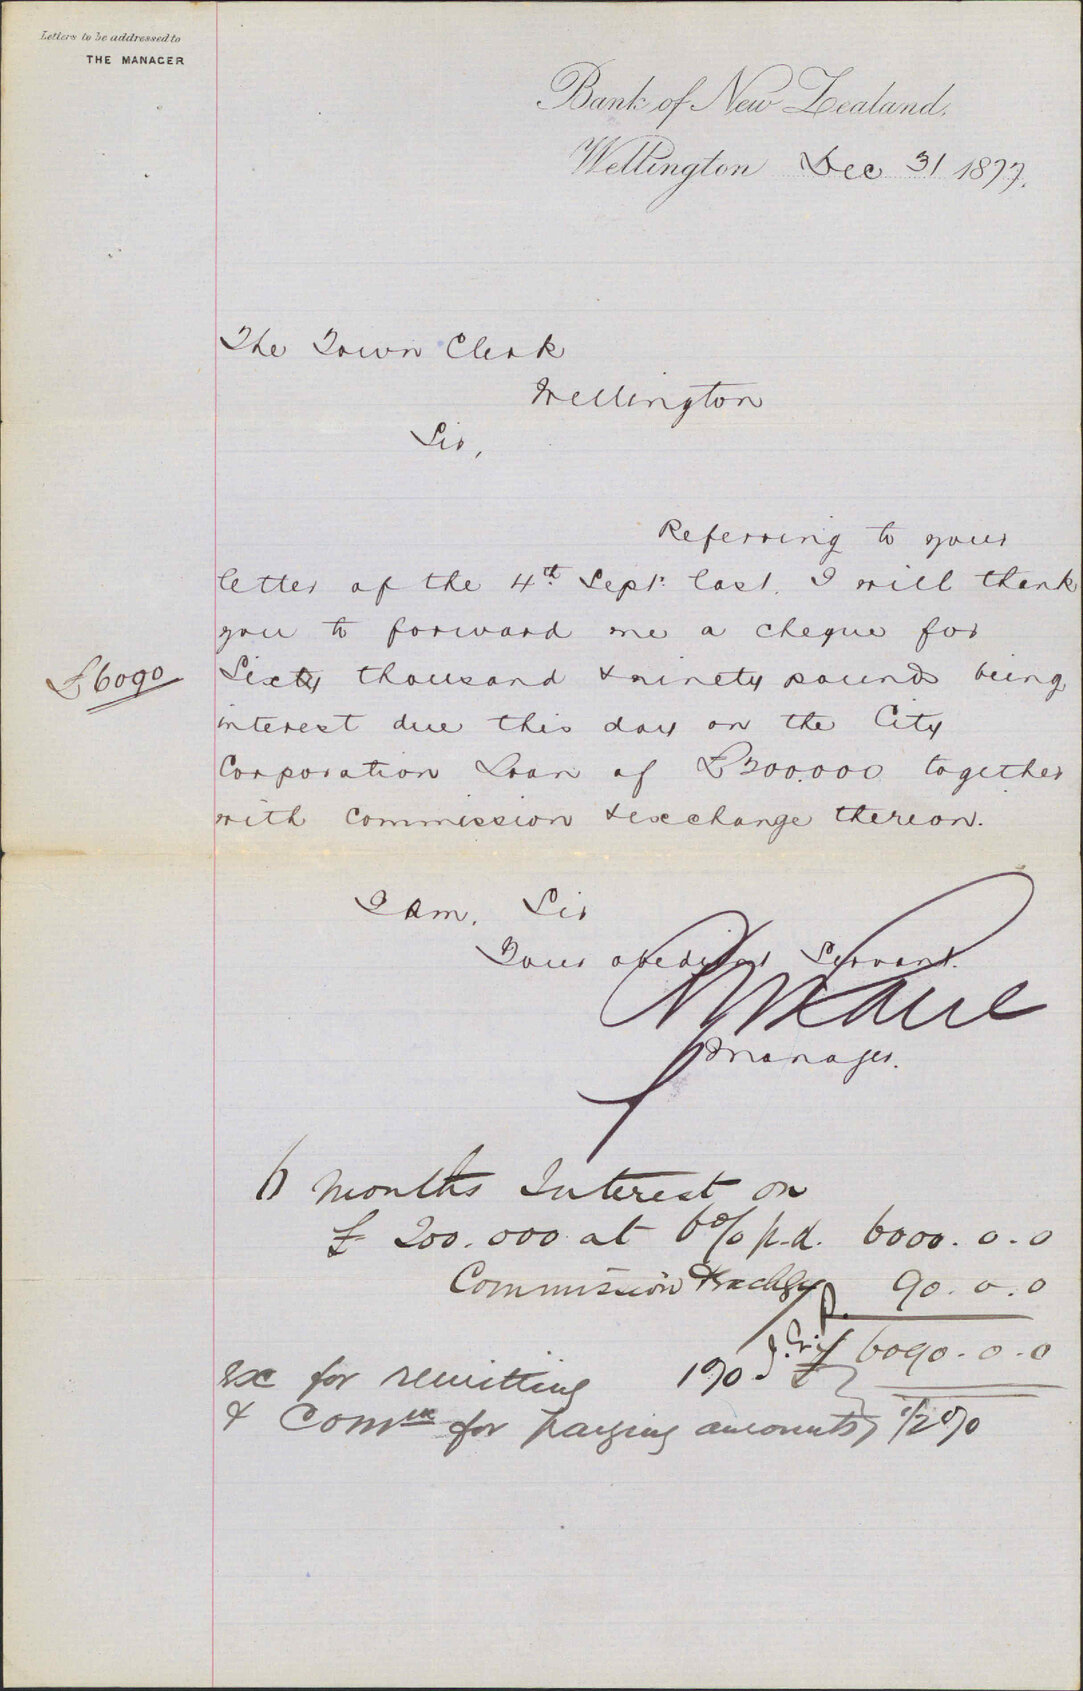 Letters to be addressed to
THE MANAGER
Bank of New Zealand,
Wellington Dec 31 1877.
The Town Clerk
Wellington
Sir,
Referring to your
letter of the 4th Sept. last. I will thank
you to forward me a cheque for
£6090
Sixty thousand & ninety pounds being
interest due this day on the City
Corporation Loan of £200.000 together
with commission & exchange thereon.
I am, Sir
Your obedient Servant.
Manager.
6 months Interest on
£ 200.000 at 6% p.a. 6000.0.0
Commission & exchge 90.0.0
£ 6090.0.0
Ex for remitting
& Comm for paying amounts 1/2 %